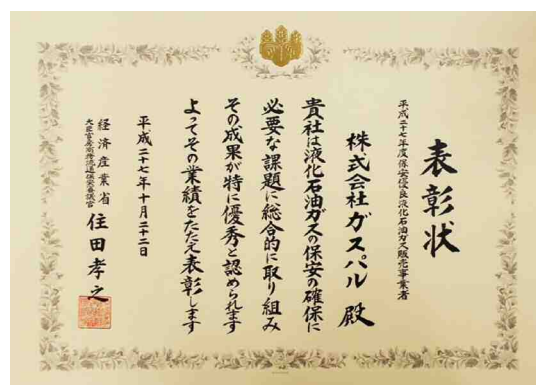 表彰状
平成二十七年度保安優良液化石油ガス販売事業者
株式会社ガスパル 殿
貴社は液化石油ガスの保安の確保に
必要な課題に総合的に取り組み
その成果が特に優秀と認められます
よってその業績をたたえ表彰します
平成二十七年十月二十二日
経済産業省
大臣官房商務流通保安審議官
住田孝之